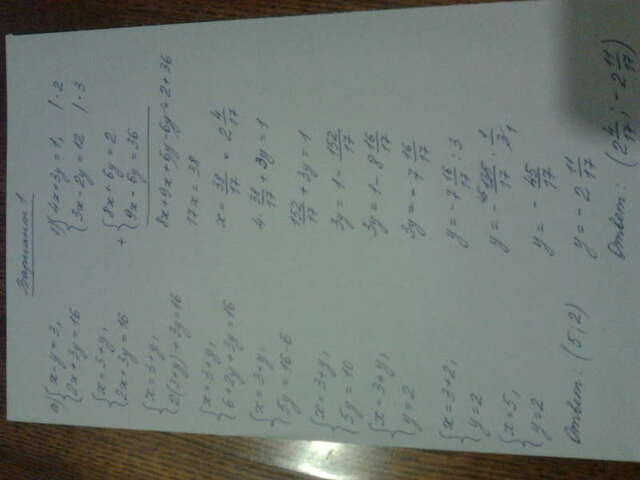 Вариант 1
а) { x - y = 3,
2x + 3y = 16
{ x = 3 + y,
2x + 3y = 16
{ x = 3 + y,
2(3 + y) + 3y = 16
{ x = 3 + y,
6 + 2y + 3y = 16
{ x = 3 + y,
5y = 16 - 6
{ x = 3 + y,
5y = 10
{ x = 3 + y,
y = 2
{ x = 3 + 2,
y = 2
{ x = 5,
y = 2
Ответ: (5; 2)
{ 4x + 3y = 1, | · 2
3x - 2y = 12 | · 3
+ { 8x + 6y = 2
9x - 6y = 36
8x + 9x + 6y - 6y = 2 + 36
17x = 38
x = 38/17 = 2 4/17
4 · 38/17 + 3y = 1
152/17 + 3y = 1
3y = 1 - 152/17
3y = 1 - 8 16/17
3y = - 7 16/17
y = - 7 16/17 : 3
y = - 45
y = - 45/17
y = - 2 11/17
Ответ: (2 4/17; - 2 11/17)